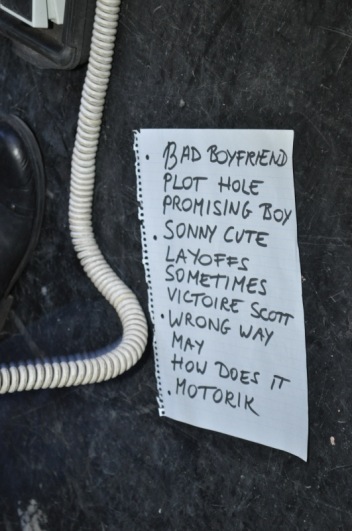 • BAD BOYFRIEND
PLOT HOLE
PROMISING BOY
• SONNY CUTE
LAYOFFS
SOMETIMES
VICTOIRE SCOTT
• WRONG WAY
MAY
HOW DOES IT
• MOTORIK